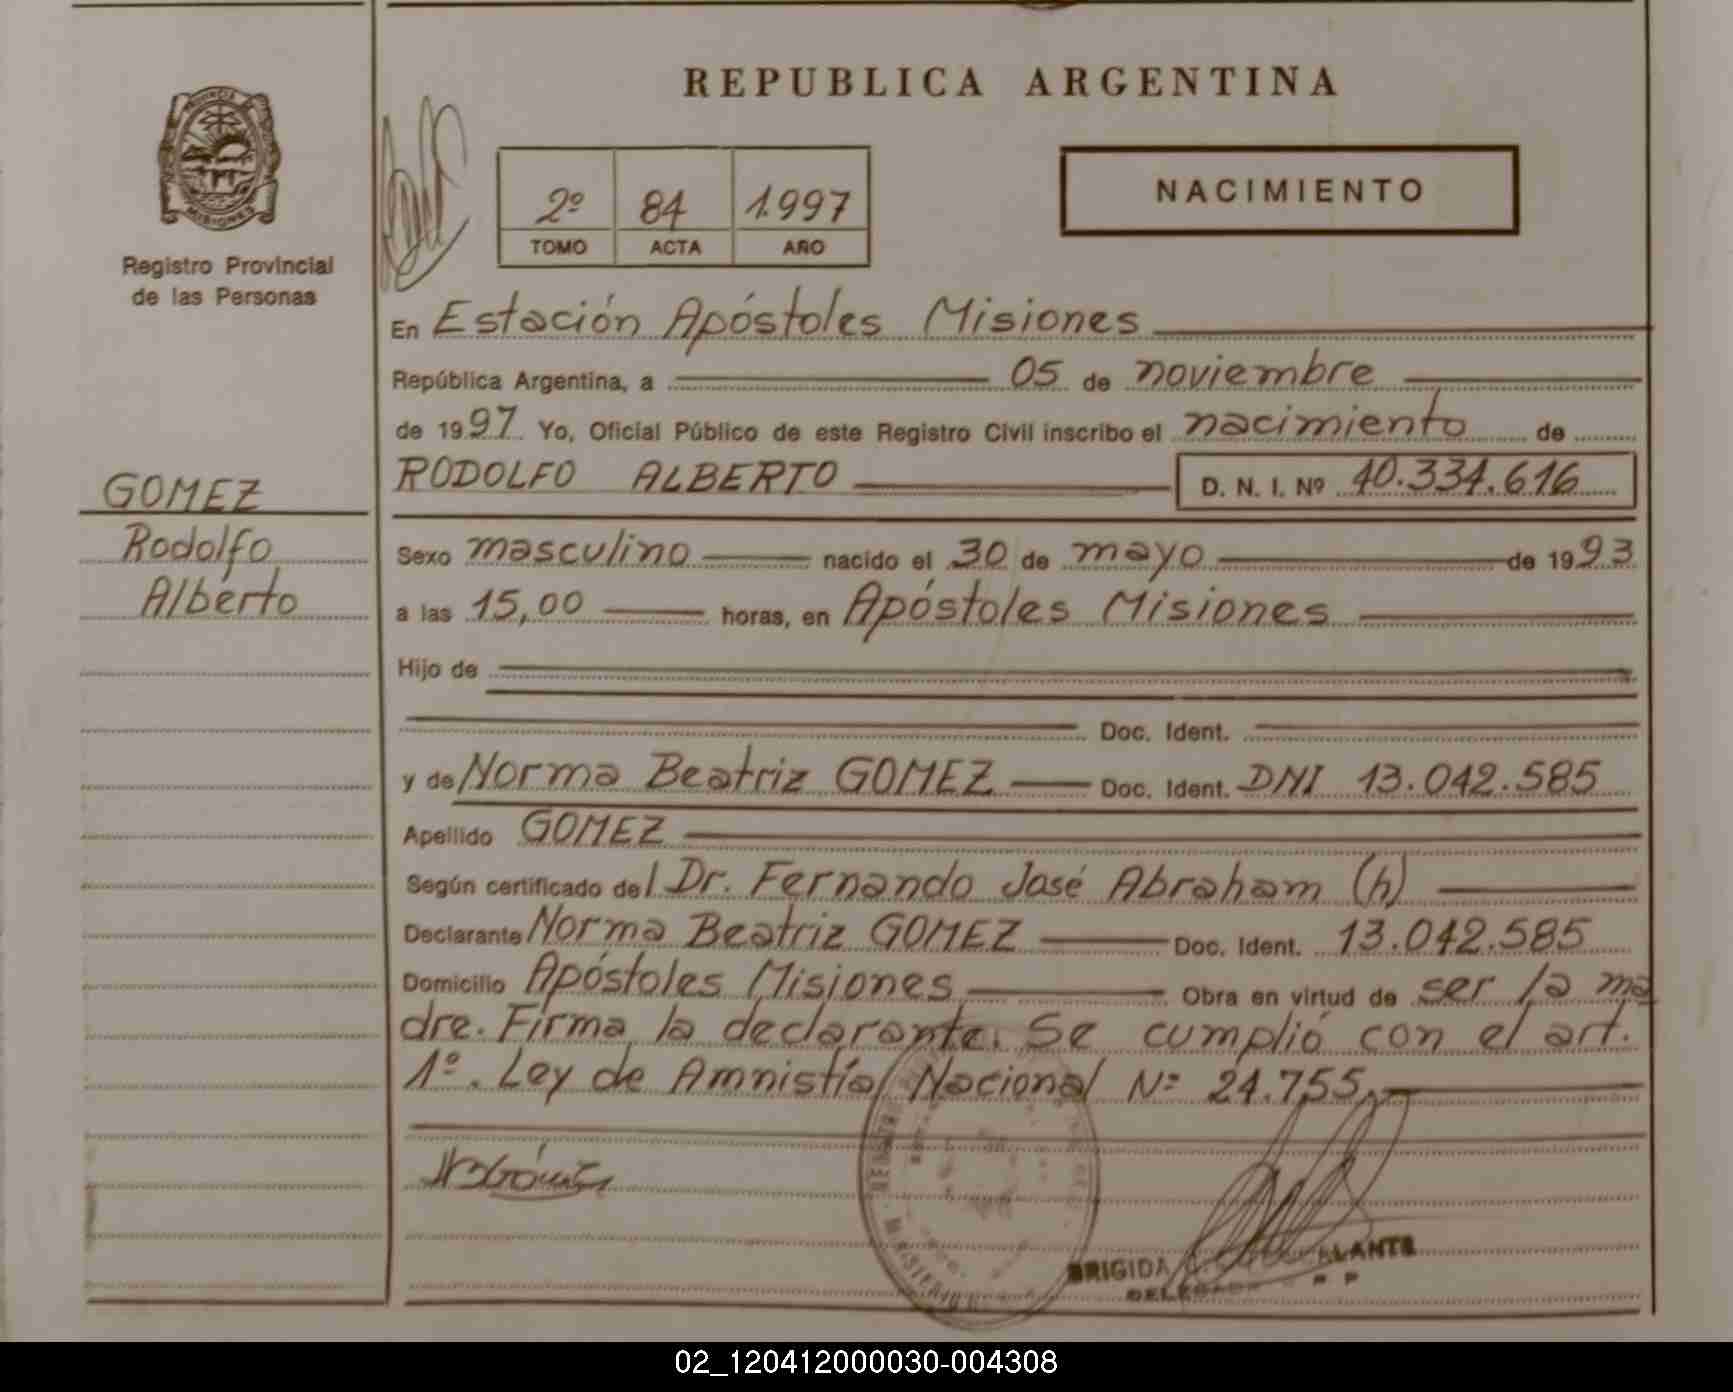 REPUBLICA ARGENTINA
NACIMIENTO
2º 84 1.997
TOMO ACTA AÑO
PROVINCIA
MISIONES
Registro Provincial
de las Personas
GOMEZ
Rodolfo
Alberto
En Estación Apóstoles Misiones
República Argentina, a 05 de noviembre
de 1997 Yo, Oficial Público de este Registro Civil inscribo el nacimiento de
RODOLFO ALBERTO D. N. I. Nº 40.334.616
Sexo masculino nacido el 30 de mayo de 1993
a las 15,00 horas, en Apóstoles Misiones
Hijo de
Doc. Ident.
y de Norma Beatriz GOMEZ Doc. Ident. DNI 13.042.585
Apellido GOMEZ
Según certificado del Dr. Fernando José Abraham (h)
Declarante Norma Beatriz GOMEZ Doc. Ident. 13.042.585
Domicilio Apóstoles Misiones Obra en virtud de ser la ma
dre. Firma la declarante. Se cumplió con el art.
1º. Ley de Amnistía Nacional Nº 24.755.
NBGómez
MINISTERIO
BRIGIDA
DELEGADA
02_120412000030-004308